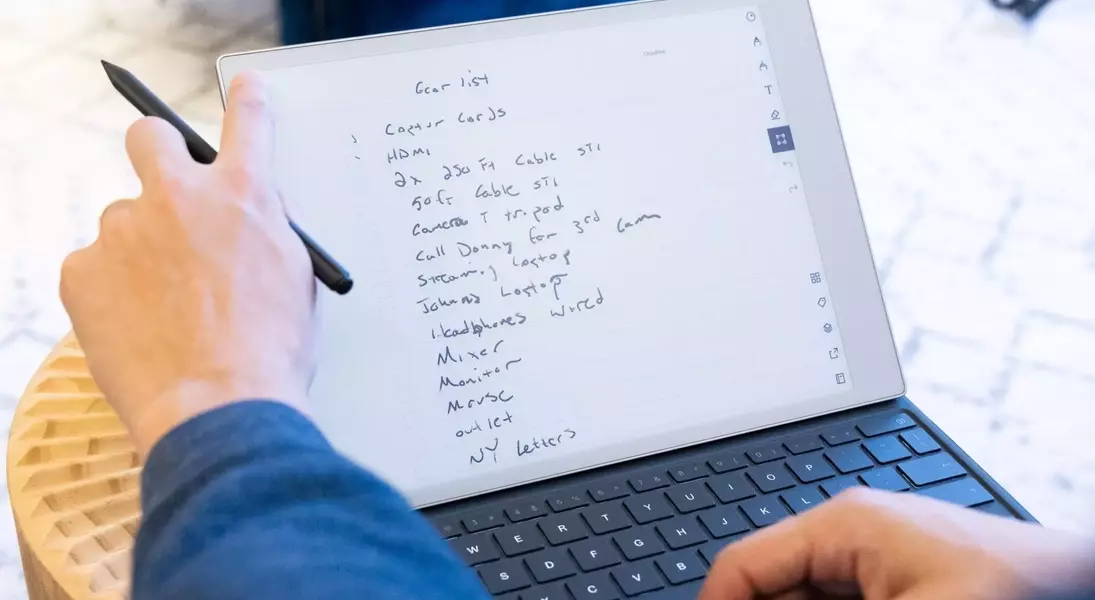 Gear list
Captur Cards
HDMI
2x 250 Ft Cable STI
50ft Cable STI
Camera T tripod
Call Donny for 3rd Cam
Streaming Laptop
Johnns Laptop
Headphones wired
Mixer
Monitor
Mouse
outlet
NY Letters
T
W E R T Y U I O P
S D F G H J K L
C V B